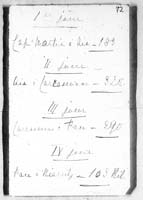 72
1er jour
Cap Martin à Aix – 183
II jour –
Aix à Carcassonne – 328
III jour
Carcassonne à Pau – 290
IV jour
Pau à Biarritz – 103 Kil